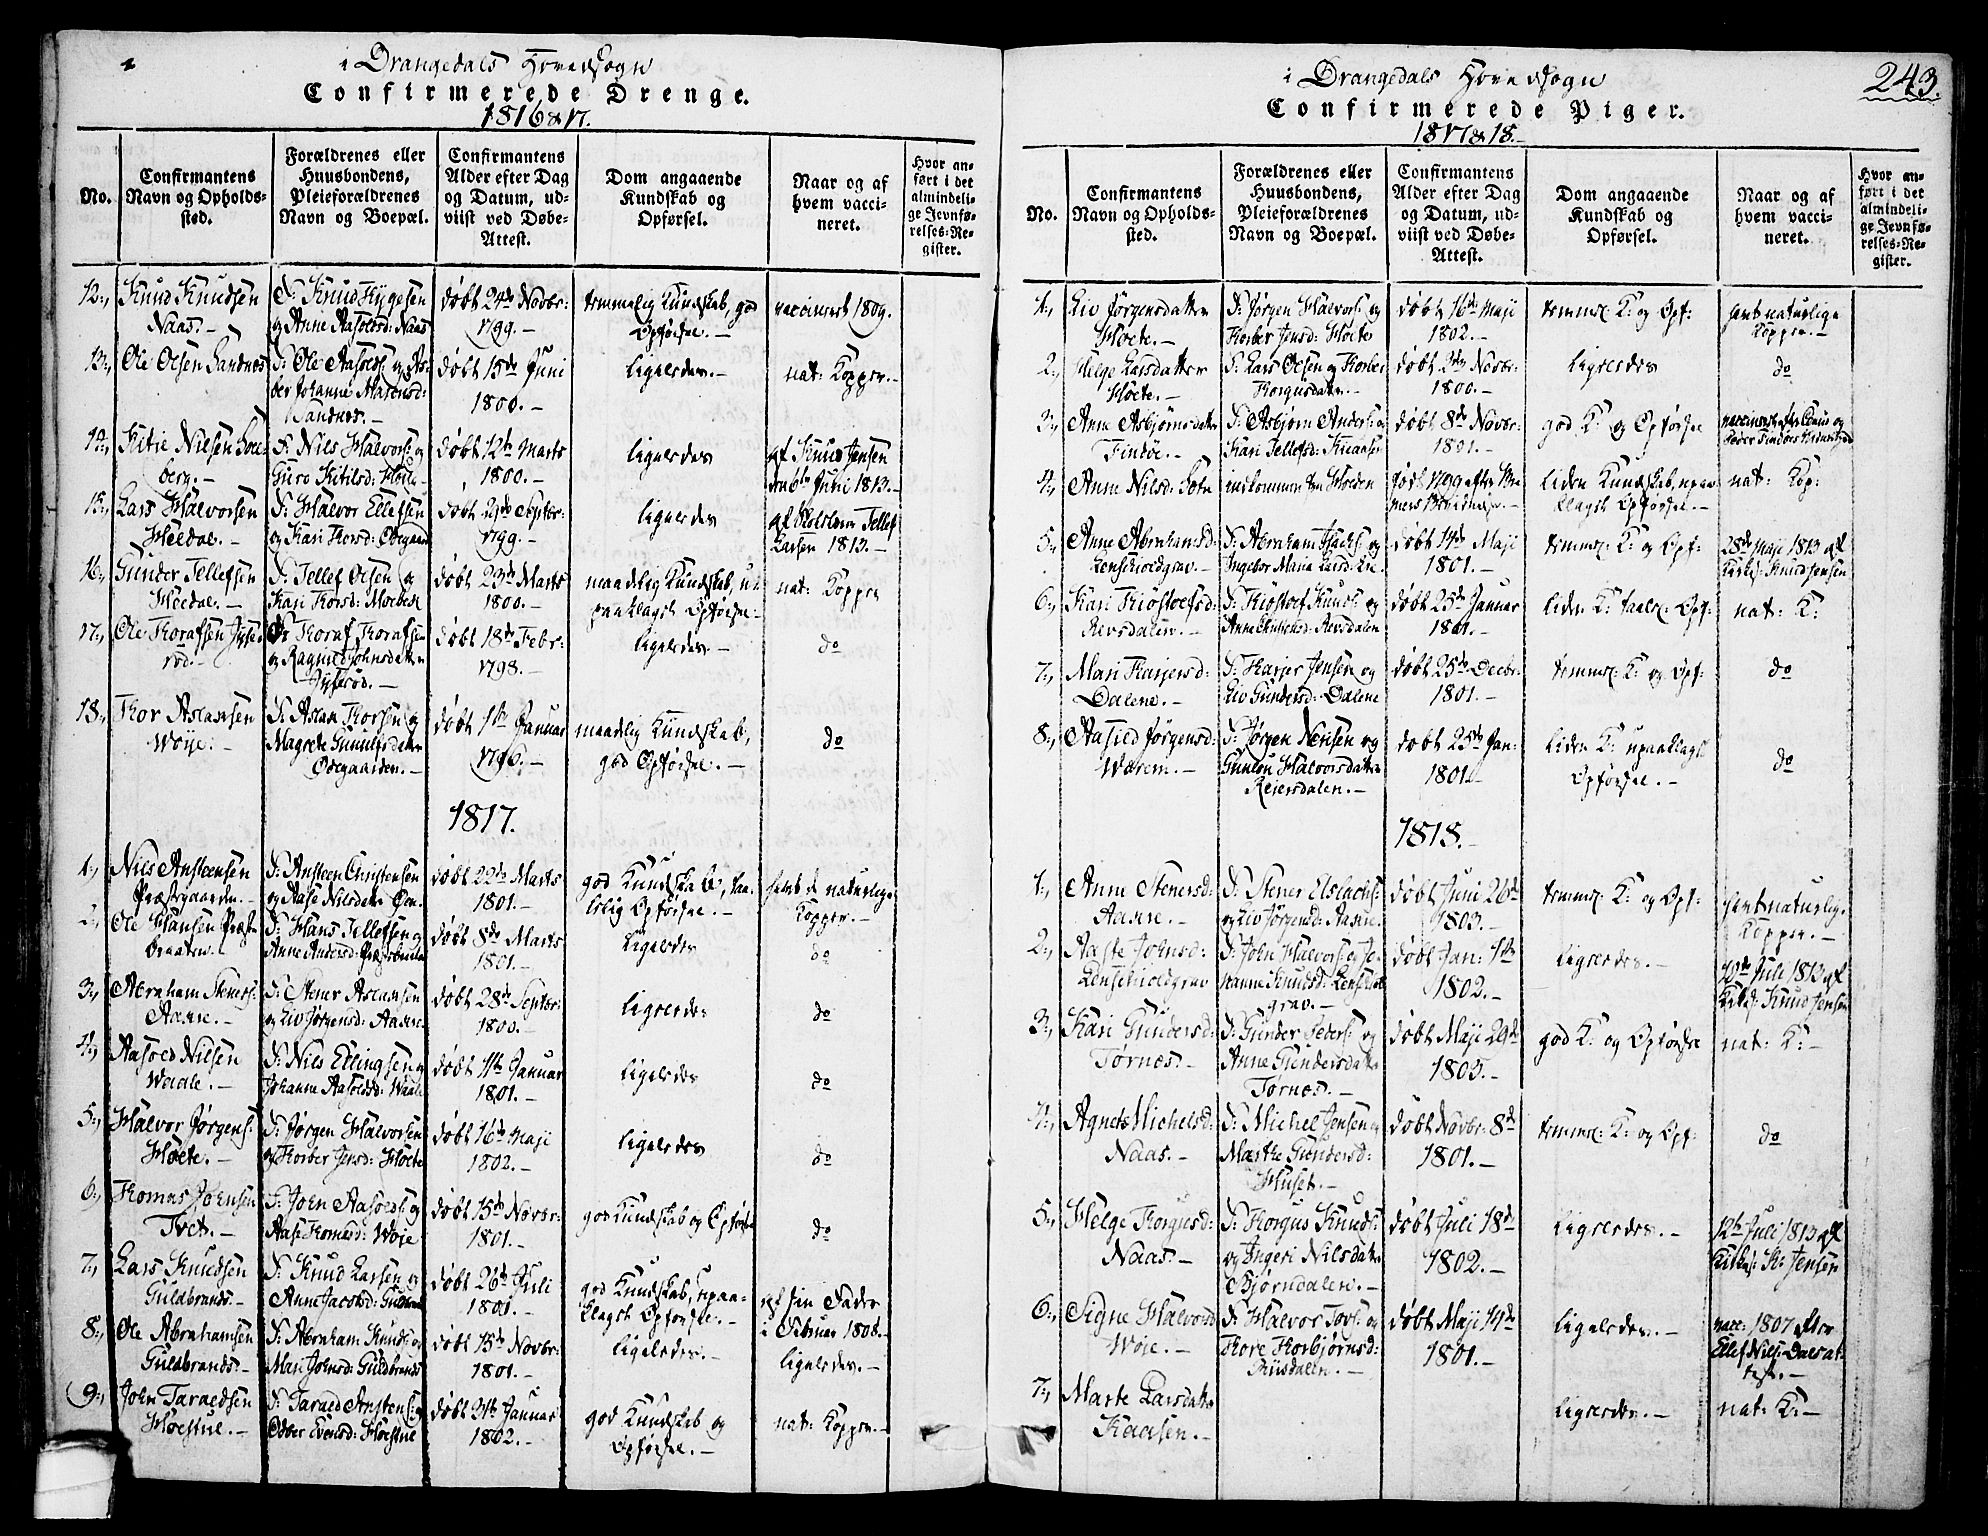 i Drangedals Hovedsogn
Confirmerede Drenge.
1816 & 17.
No.
Confirmantens
Navn og Opholds-
sted.
Forældrenes eller
Huusbondens,
Pleieforældrenes
Navn og Boepæl.
Confirmantens
Alder efter Dag
og Datum, ud-
viist ved Døbe-
Attest.
Dom angaaende
Kundskab og
Opførsel.
Naar og af
hvem vacci-
neret.
Hvor an-
ført i det
almindeli-
ge Jevnfø-
relses-Re-
gister.
12., Knud Knudsen
Naas.-
F: Knud
og Anne Aasolds: Naas
døbt 24de Novbr:
1799.-
temmelig Kundskab, god
Opførsel.-
vaccineret 1809.
13., Ole Olsen Sandnes
F: Ole Aasolds: og
Johanne
Sandnes.-
døbt 15de Juni
1800.-
ligeledes.-
nat: Kopper.-
14., Kitil Nilsen
berg.-
F: Nils Halvors: og
Guro Kitilsd:
døbt 12te Marts
1800.-
ligeledes
af Knud Jensen
den 6te Juni 1813.-
15., Lars Halvorsen
Heedal.-
F: Halvor Ellefsen
og Kari Thorsd: Ødegaard
døbt 29de Septbr:
1799.-
ligeledes
af Tellef
Larsen 1813.-
16., Gunder Tellefsen
Heedal.-
F: Tellef Olsen og
Kari Thorsd: Moebek
døbt 23de Marts
1800.-
maadelig Kundskab, u-
paaklagt Opførsel.-
nat: Kopper
17., Ole Thorafsen
rød.-
F: Thoraf Thorafsen
og Ragnild Johnsdatter
døbt 18de Febr:
1798.-
ligeledes.-
do
18., Thor Aslaksen
Woje.-
F: Aslak Thorsen og
Magrete Gunulfsdatter
Ødegaarden.-
døbt 1te Januar
1796.-
maadelig Kundskab,
god Opførsel.-
do
1817.
1., Nils Ansteensen
Præstegaarden.-
F: Ansteen Christensen
og Aase Nilsdatter
døbt 22de Marts
1801.-
god Kundskab, taa-
lelig Opførsel.-
havt de naturlige
Kopper.-
2., Ole Hansen Præste-
Braaten.-
F: Hans Tellefsen og
Anne Andersd:
døbt 8de Marts
1801.-
ligeledes
do
3., Abraham Steners:
Aasne.-
F: Stener Aslaksen
og Liv Jørgensd: Aasne.
døbt 28de Septbr:
1800.-
ligeledes
do
4., Aasold Nilsen
Waale.-
F: Nils Ellingsen og
Johanne Aasoldsd: Waale
døbt 11te Januar
1801.-
ligeledes
do
5., Halvor Jørgens:
Hoete.-
F: Jørgen Halvorsen
og Thorber Jensd: Hoete
døbt 16de Maji
1802.-
ligeledes
do
6., Thomas Johnsen
Tvet.-
F: John Aasolds: og
Aase Thomasd: Woje
døbt 15de Novbr:
1801.-
god Kundskab og Opførsel
do
7., Lars Knudsen
Guldbrands.-
F: Knud Larsen og
Anne Jacobsd:
døbt 26de Juli
1801.-
god Kundskab, upaa-
klagt Opførsel.-
af sin Fader
i Februar 1808.-
8., Ole Abrahamsen
Guldbrands.-
F: Abraham Knuds: og
Mari Johnsd: Guldbrands
døbt 15de Novbr:
1801.-
ligeledes.-
ligeledes.-
9., John Taraldsen
Hoestul.-
F: Tarald Anstens: og
Evensd: Hoestul
døbt 31te Januar
1802.-
god Kundskab og
Opførsel.-
nat: Kopper.-
243.
i Drangedals Hovedsogn
Confirmerede Piger.
1817 & 18.-
No.
Confirmantens
Navn og Opholds-
sted.
Forældrenes eller
Huusbondens,
Pleieforældrenes
Navn og Boepæl.
Confirmantens
Alder efter Dag
og Datum, ud-
viist ved Døbe-
Attest.
Dom angaaende
Kundskab og
Opførsel.
Naar og af
hvem vacci-
neret.
Hvor an-
ført i det
almindeli-
ge Jevnfø-
relses-Re-
gister.
1., Liv Jørgensdatter
Hoete.-
F: Jørgen Halvors: og
Thorber Jensd: Hoete
døbt 16de Maji
1802.
temmel: K: og Opf:
havt naturlige
Kopper.-
2., Helge Larsdatter
Hoete.-
F: Lars Olsen og Thorber
Thorgusdatter.-
døbt Novbr:
1800.-
ligeledes
do
3., Anne Asbjørnsdatter
Findøe.-
F: Asbjørn Anders: og
Kari Tellefsd:
døbt 8de Novbr:
1801.-
god K: og Opførsel
4., Anne Nilsd:
født 1799 efter
liden Kundskab, upaa-
klagt Opførsel.-
nat: Kop:
5., Anne Abrahamsd:
Lenschioldgrav.-
F: Abraham Isachs: og
Ingebor Maria
døbt 14de Maji
1801.-
temmel: K: og Opf:
28de Maji 1813 af
Kirkes: Knud Jensen
6., Kari Kiøstolfsd:
Revsdalen.-
F: Kiøstolf Knuds: og
Anne Revsdalen
døbt 25de Januar
1801.-
liden K: taalel: Opf:
nat: K:
7., Mari Tharjersd:
Dalene.-
F: Tharjer Jensen og
Liv Gundersd: Dalene
døbt 25de Decbr:
1801.-
temmel: K: og Opf:
do
8., Aasild Jørgensd:
Wærem.-
F: Jørgen og
Gunlou Halvorsdatter
Reiersdalen.-
døbt 25de Jan:
1801.-
liden K: upaaklagt
Opførsel.-
do
1818.-
1., Anne Stenersd:
Aasne.-
F: Stener
og Liv Jørgensd: Aasne.
døbt Juni 26de
1803.-
temmel: K: og Opf:
havt naturlige
Kopper.-
2., Aaste Johnsd:
Lenschioldgrav
F: John Halvors: og Jo-
hanne Knudsd: Lenschiold
grav.-
døbt Jan: 1te
1802.-
ligeledes.-
12de Juli 1813 af
Kirkes: Knud Jensen
3., Kari Gundersd:
Tørnes.-
F: Gunder Peders: og
Anne Gundersdatter
Tørnes.-
døbt Maji 29de
1803.-
god K: og Opførsel
nat: K:-
4., Agnete Michelsd:
Naas.-
F: Michel Jensen og
Marthe Gundersd:
Huset.-
døbt Novbr: 8de
1801.-
temmel: K: og Opf:
do
5., Helge Thorgusd:
Naas.-
F: Thorgus Knuds:
og Ingeri Nilsdatter
Bjørndalen.-
døbt Juli 18de
1802.-
ligeledes.-
12te Juli 1813 af
Kirkes: K: Jensen
6., Signe Halvorsd
Woje.-
F: Halvor Tovs: og
Thore Thorbjørnsd:
Riisdalen.-
døbt Maji 14de
1801.-
ligeledes.-
vacc: 1807 efter
Ellef Nils: Dalsat-
test.-
7., Marte Larsdatter
Kaasen.-
ligeledes.-
nat: K:-